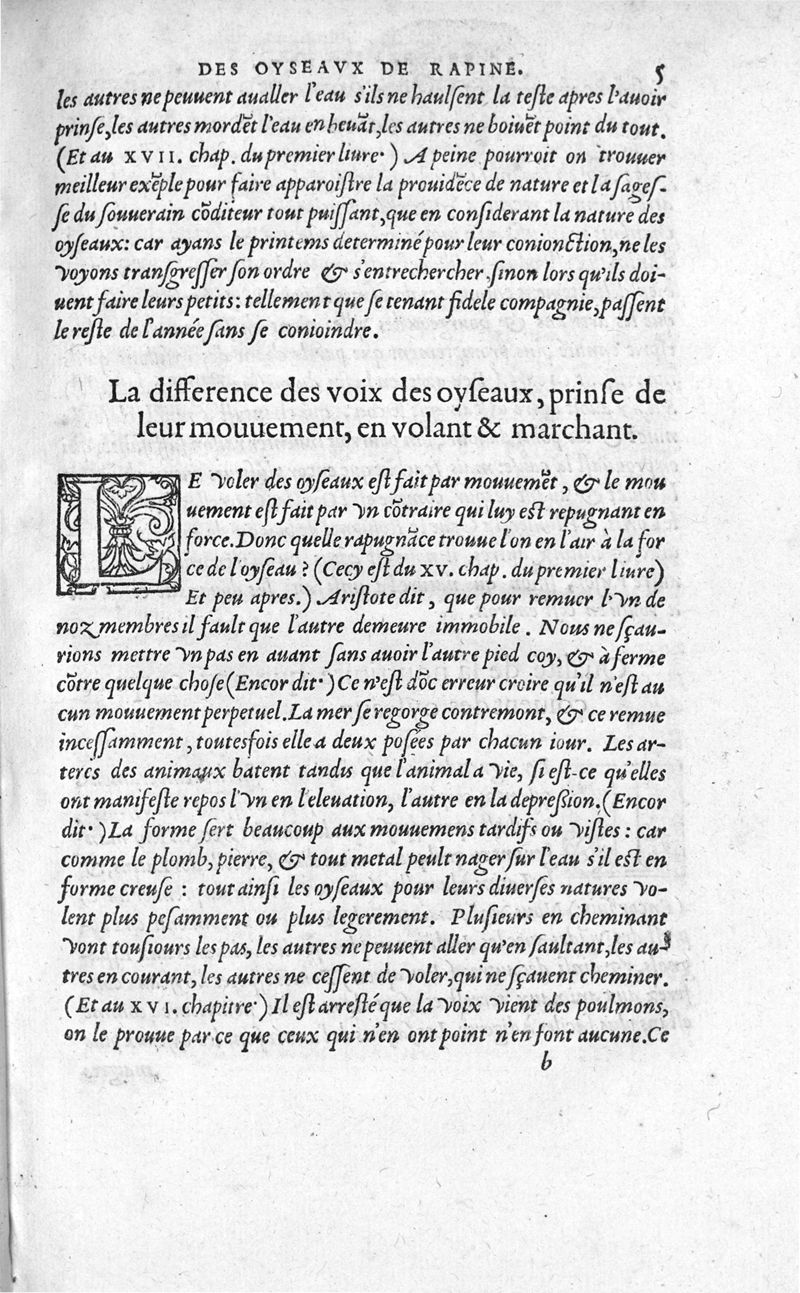 DES OYSEAVX DE RAPINE. 5
les autres ne peuuent aualler l'eau s'ils ne haulſent la teſte apres l'auoir
prinſe, les autres mordẽt l'eau en beuãt, les autres ne boiuẽt point du tout.
(Et au XVII. chap. du premier liure.) A peine pourroit on trouuer
meilleur exẽple pour faire apparoiſtre la prouidẽce de nature et la ſageſ-
ſe du ſouuerain cõditeur tout puiſſant, que en conſiderant la nature des
oyſeaux: car ayans le printems determiné pour leur conionction, ne les
voyons tranſgreſſer ſon ordre & s'entrechercher ſinon lors qu'ils doi-
uent faire leurs petits: tellement que ſe tenant fidele compagnie, paſſent
le reſte de l'année ſans ſe conioindre.
La difference des voix des oyſeaux, prinſe de
leur mouuement, en volant & marchant.
LE voler des oyſeaux eſt fait par mouuemẽt, & le mou
uement eſt fait par vn cõtraire qui luy eſt repugnant en
force. Donc quelle rapugnãce trouue l'on en l'air à la for
ce de l'oyſeau? (Cecy eſt du XV. chap. du premier liure)
Et peu apres.) Ariſtote dit, que pour remuer l'vn de
noz membres il fault que l'autre demeure immobile. Nous ne ſçau-
rions mettre vn pas en auant ſans auoir l'autre pied coy, & à ferme
cõtre quelque choſe (Encor dit.) Ce n'eſt dõc erreur croire qu'il n'eſt au
cun mouuement perpetuel. La mer ſe regorge contremont, & ce remue
inceſſamment, toutesfois elle a deux poſées par chacun iour. Les ar-
teres des animaux batent tandis que l'animal a vie, ſi eſt-ce qu'elles
ont manifeſte repos l'vn en l'eleuation, l'autre en la depreſsion. (Encor
dit.) La forme ſert beaucoup aux mouuemens tardifs ou viſtes: car
comme le plomb, pierre, & tout metal peult nager ſur l'eau s'il eſt en
forme creuſe: tout ainſi les oyſeaux pour leurs diuerſes natures vo-
lent plus peſamment ou plus legerement. Pluſieurs en cheminant
vont touſiours les pas, les autres ne peuuent aller qu'en ſaultant, les au-
tres en courant, les autres ne ceſſent de voler, qui ne ſçauent cheminer.
(Et au XVI. chapitre.) Il eſt arreſté que la voix vient des poulmons,
on le prouue par ce que ceux qui n'en ont point n'en font aucune. Ce
b